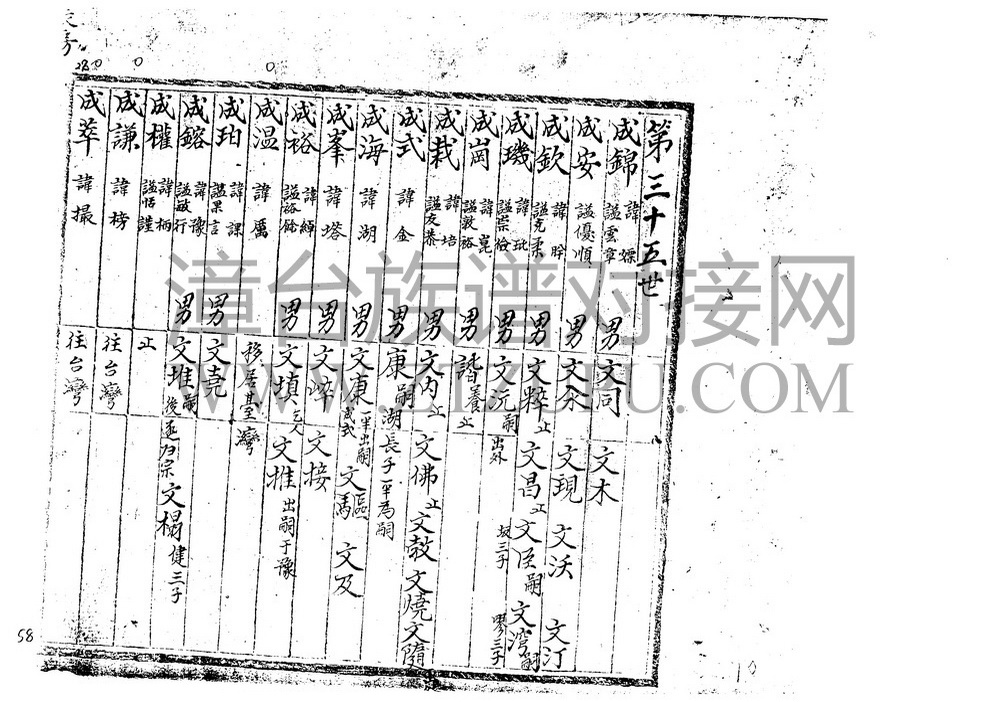 第三十五世
成錦 諱嫖 謚雲章 男 文同 文木
成安 謚優順 男 文余 文現 文沃 文汀
成欽 諱肸 謚克柔 男 文粹 止 文昌 止 文臣嗣 文灣嗣
成璣 諱玭 謚崇儉 男 文沅嗣 出外 坂三子 三子
成崗 諱崑 謚敦裕 男 諧養 止
成栽 諱培 謚友恭 男 文內 止 文佛 止 文教 文燒 文隨
成式 諱金 男 康 嗣湖長子一半為嗣
成海 諱湖 男 文康 一半出嗣成式 文區 文馬 文及
成峯 諱塔 男 文焠 文接
成裕 諱綽 謚裕餘 男 文填 文推 出嗣于豫
成溫 諱厲 移居臺灣
成珀 諱課 謚果言 男 文堯
成鎔 諱豫 謚敏行 男 文堆嗣 文榻 健三子
成權 諱柄 謚恬謹 止
成謙 諱榜 往台灣
成萃 諱撮 往台灣
58
漳台族谱对接网
WWW.ZTZUPU.COM